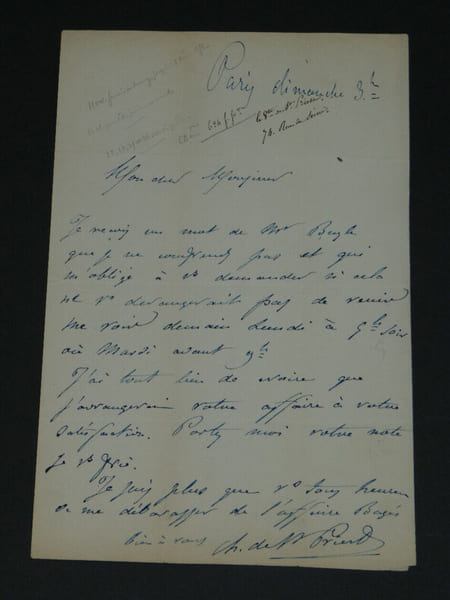 Paris dimanche 3 h
Mon cher Monsieur
Je reçois un mot de Mr Bayle
que je ne comprends pas et qui
m'oblige à vs demander si cela
ne vs dérangerait pas de venir
me voir demain Lundi à 5 hs soir
ou Mardi avant 9 hs
J'ai tout lieu de croire que
j'arrangerai votre affaire à votre
satisfaction. Portez moi votre note
je vs prie.
Je suis plus que vs tous heureux
de me débarasser de l'affaire
bien à vous
Ch. de St Priest